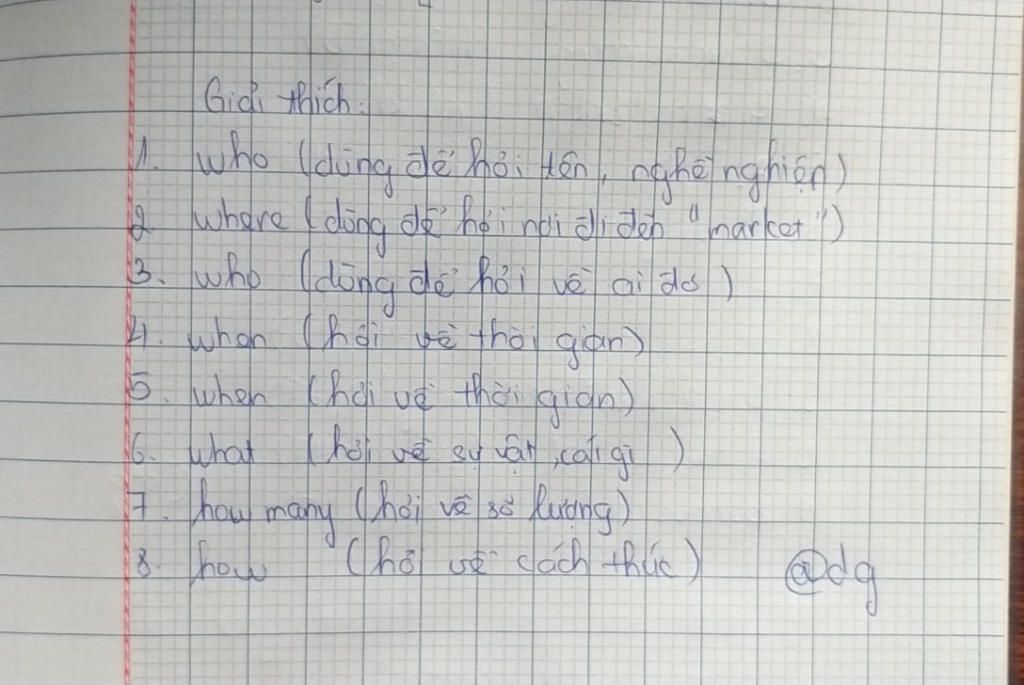 Giải thích:
1. who (dùng để hỏi tên, nghề nghiện)
2 where (dùng để hỏi nơi đi đến "market")
3. who (dùng để hỏi về ai đó)
4. when (hỏi về thời gian)
5. when (hỏi về thời gian)
6. what (hỏi về sự vật, cái gì)
7. how many (hỏi về số lượng)
8. how (hỏi về cách thức) @dg